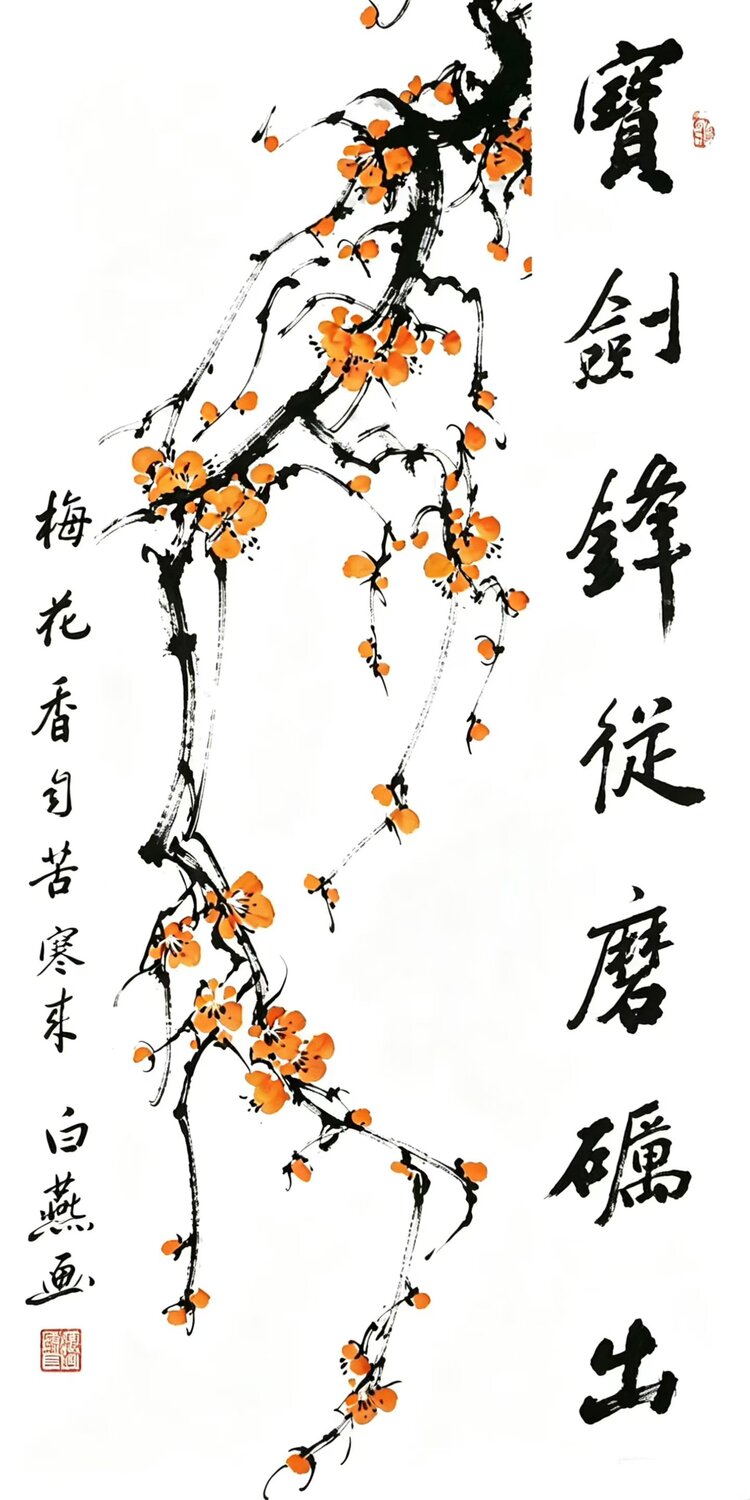 寶劍鋒從磨礪出
梅花香自苦寒来
白燕画